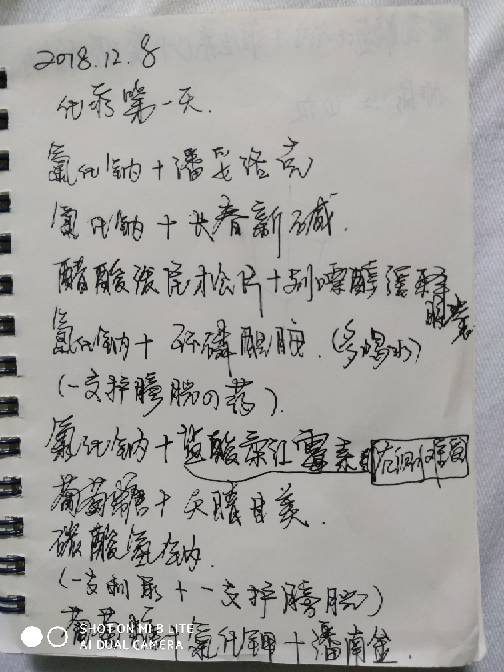 2018.12.8
化疗第一天.
氯化钠+潘妥洛克
氯化钠+长春新碱.
醋酸泼尼松片+别嘌醇缓释
胶囊
氯化钠+环磷酰胺.(多喝水)
(一支护膀胱の药).
氯化钠+盐酸柔红霉素
葡萄糖+天晴甘美.
碳酸氢钠.
(一支利尿+一支护膀胱)
葡萄糖+氯化钾+潘南金.
SHOT ON MI 8 LITE
AI DUAL CAMERA